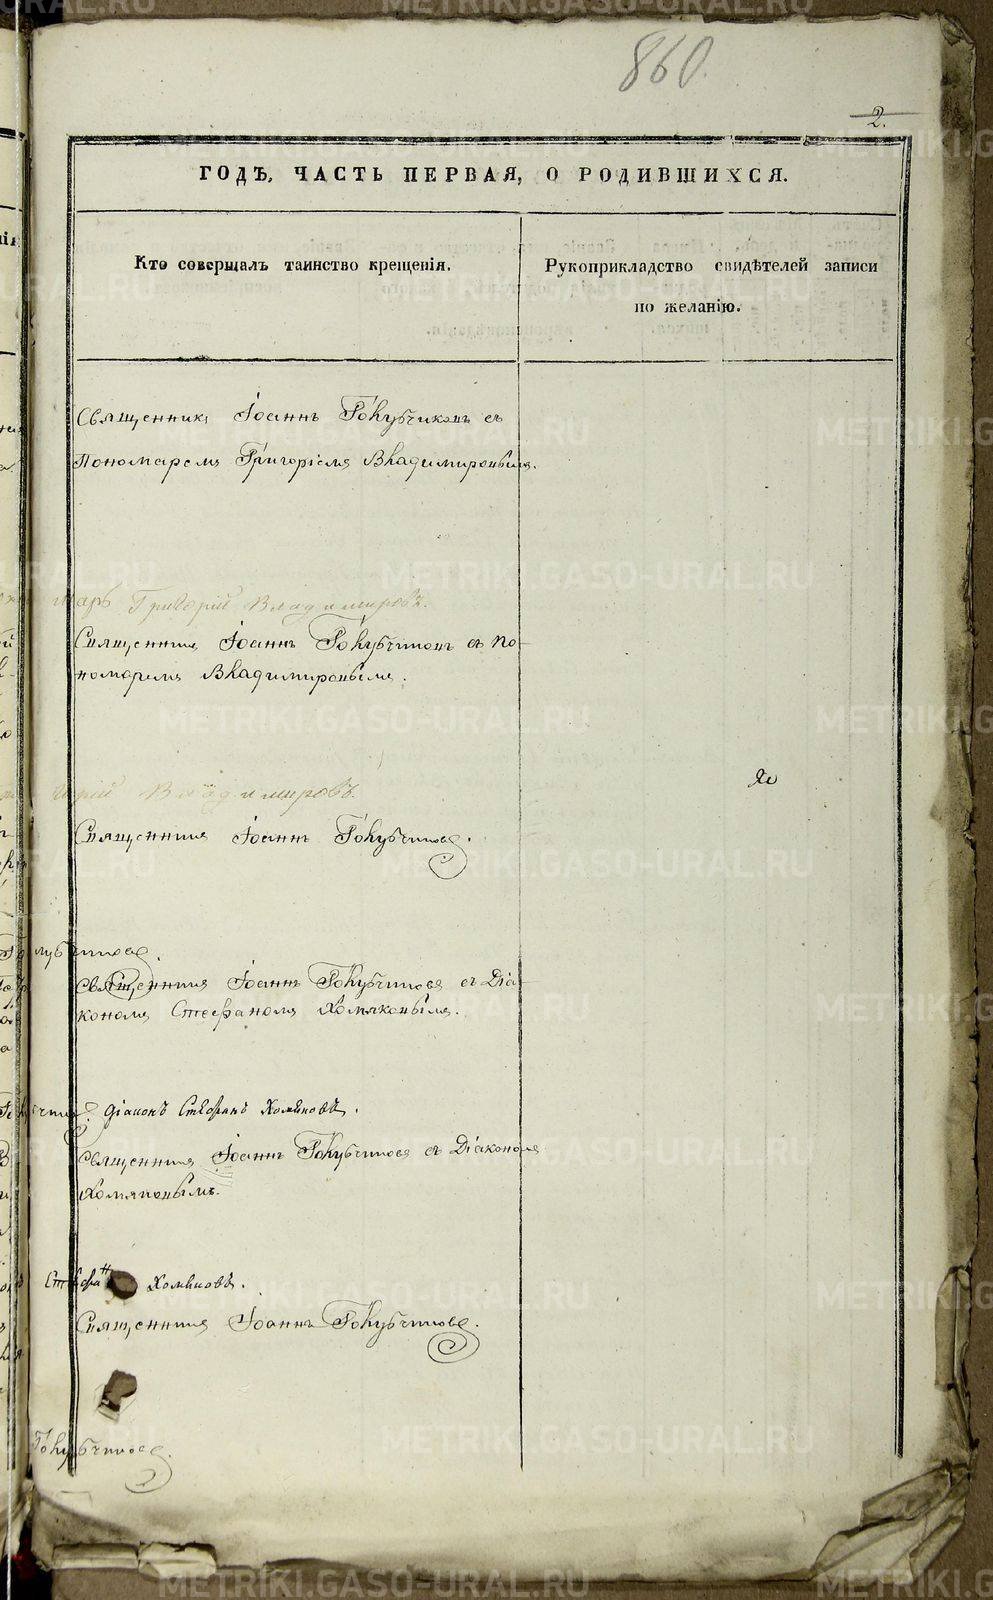 860.
2.
ГОДѢ, ЧАСТЬ ПЕРВАЯ, О РОДИВШИХСЯ.
Кто совершалъ таинство крещенія.
Рукоприкладство свидѣтелей записи
по желанію.
Священникъ Іоаннъ Голубчиковъ съ
Пономаремъ Григоріемъ Владимировымъ.
Григорій Владимировъ.
Священникъ Іоаннъ Голубчиковъ съ По-
номаремъ Владимировымъ.
Владимировъ.
Священникъ Іоаннъ Голубчиковъ.
Священникъ Іоаннъ Голубчиковъ съ Діа-
кономъ Стефаномъ Хомяковымъ.
Діаконъ Стефанъ Хомяковъ.
Священникъ Іоаннъ Голубчиковъ съ Діакономъ
Хомяковымъ.
Стефанъ Хомяковъ.
Священникъ Іоаннъ Голубчиковъ.
Голубчиковъ.
METRIKI.GASO-URAL.RU